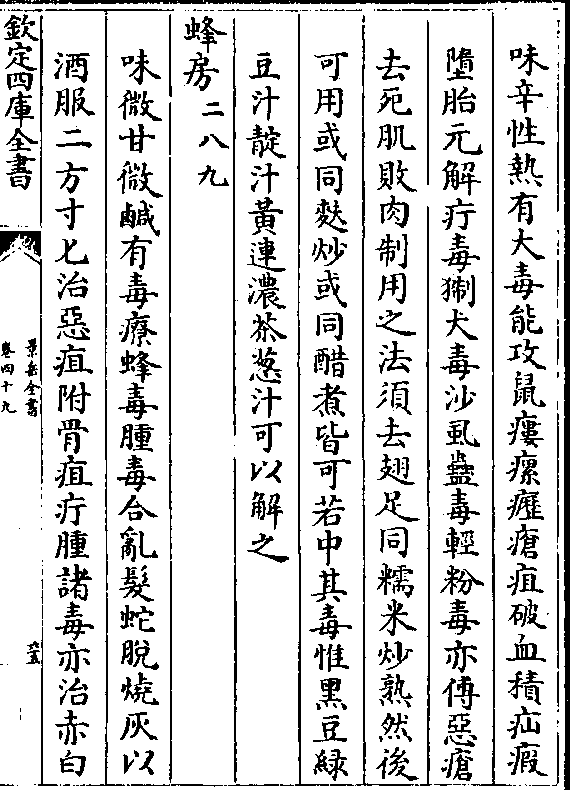 味辛性熱有大毒能攻鼠瘻瘰癧瘡疽破血積疝瘕
墮胎元解疔毒猘犬毒沙虱蠱毒輕粉毒亦傅惡瘡
去死肌敗肉制用之法須去翅足同糯米炒熟然後
可用或同麩炒或同醋煮皆可若中其毒惟黑豆緑
豆汁靛汁黃連濃茶葱汁可以解之
蜂房二八九
味微甘微鹹有毒療蜂毒腫毒合亂髮蛇脫燒灰以
酒服二方寸匕治惡疽附骨疽疔腫諸毒亦治赤白
欽定四庫全書
景岳全書
卷四十九
六五